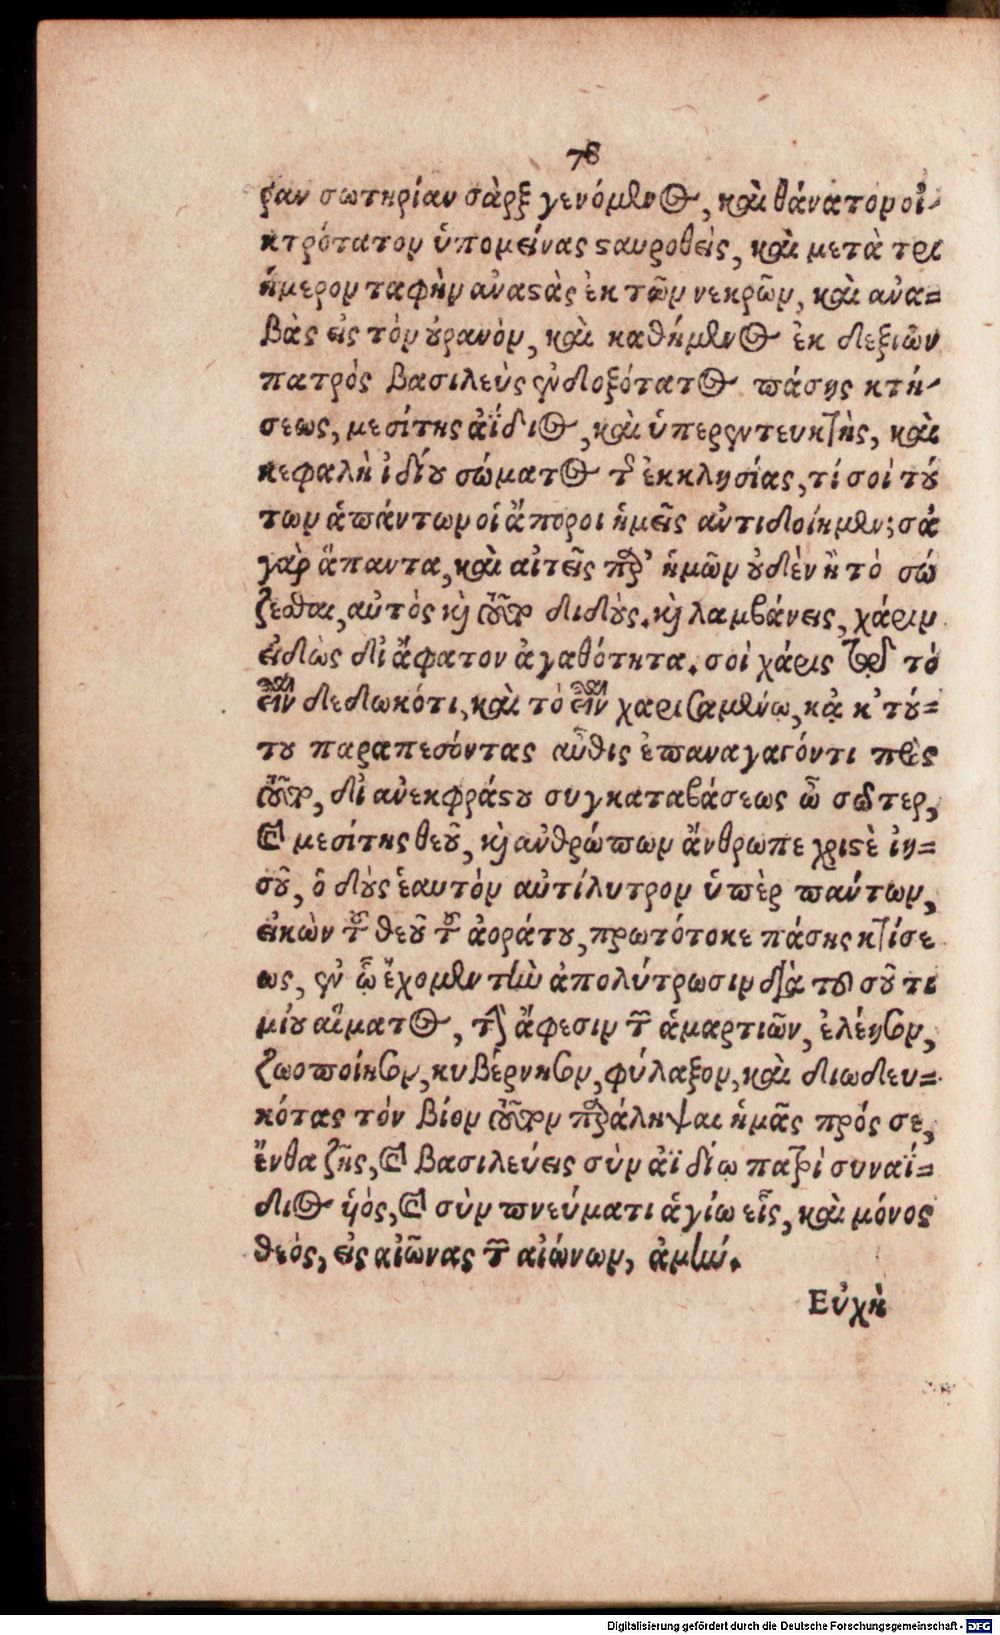 78
ραν σωτηρίαν σὰρξ γενόμενος, καὶ θάνατον οἰ-
κτρότατον ὑπομείνας σαυροθεὶς, καὶ μετὰ τρι
ήμερον ταφὴν ἀναστὰς ἐκ τῶν νεκρῶν, καὶ ἀνα=
βὰς εἰς τὸν οὐρανὸν, καὶ καθήμενος ἐκ δεξιῶν
πατρὸς βασιλεὺς ἐνδοξότατος πάσης κτή-
σεως, μεσίτης ἀΐδιος, καὶ ὑπερεντευκτὴς, καὶ
κεφαλὴ ἰδίου σώματος τῆς ἐκκλησίας, τί σοί τού
των ἁπάντων οἱ ἄποροι ἡμεῖς ἀντιδοίημεν; σὰ
γὰρ ἅπαντα, καὶ αἰτεῖς παρ' ἡμῶν οὐδὲν ἢ τὸ σώ
ζεσθαι, αὐτὸς καὶ τοῦτο διδοὺς. καὶ λαμβάνεις, χάριν
εἰδὼς δι' ἄφατον ἀγαθότητα. σοὶ χάρις τῷ τὸ
εἶναι δεδωκότι, καὶ τὸ εὖ εἶναι χαρισαμένῳ, κἀκ τού=
του παραπεσόντας αὖθις ἐπαναγαγόντι πρὸς
τοῦτο, δι' ἀνεκφράστου συγκαταβάσεως ὦ σῶτερ,
καὶ μεσίτης θεοῦ, καὶ ἀνθρώπων ἄνθρωπε χριστὲ ἰη=
σοῦ, ὁ δοὺς ἑαυτὸν ἀντίλυτρον ὑπὲρ πάντων,
εἰκὼν τοῦ θεοῦ τοῦ ἀοράτου, πρωτότοκε πάσης κτίσε
ως, ἐν ᾧ ἔχομεν τὴν ἀπολύτρωσιν διὰ τοῦ σοῦ τι
μίου αἵματος, τὴν ἄφεσιν τῶν ἁμαρτιῶν, ἐλέησον,
ζωοποίησον, κυβέρνησον, φύλαξον, καὶ διωδευ=
κότας τὸν βίον τοῦτον παράληψαι ἡμᾶς πρός σε,
ἔνθα ζῇς, καὶ βασιλεύεις σὺν ἀϊδίῳ πατρὶ συναΐ=
διος υἱὸς, καὶ σὺν πνεύματι ἁγίῳ εἷς, καὶ μόνος
θεὸς, εἰς αἰῶνας τῶν αἰώνων, ἀμήν.
Εὐχὴ
Digitalisierung gefördert durch die Deutsche Forschungsgemeinschaft - DFG